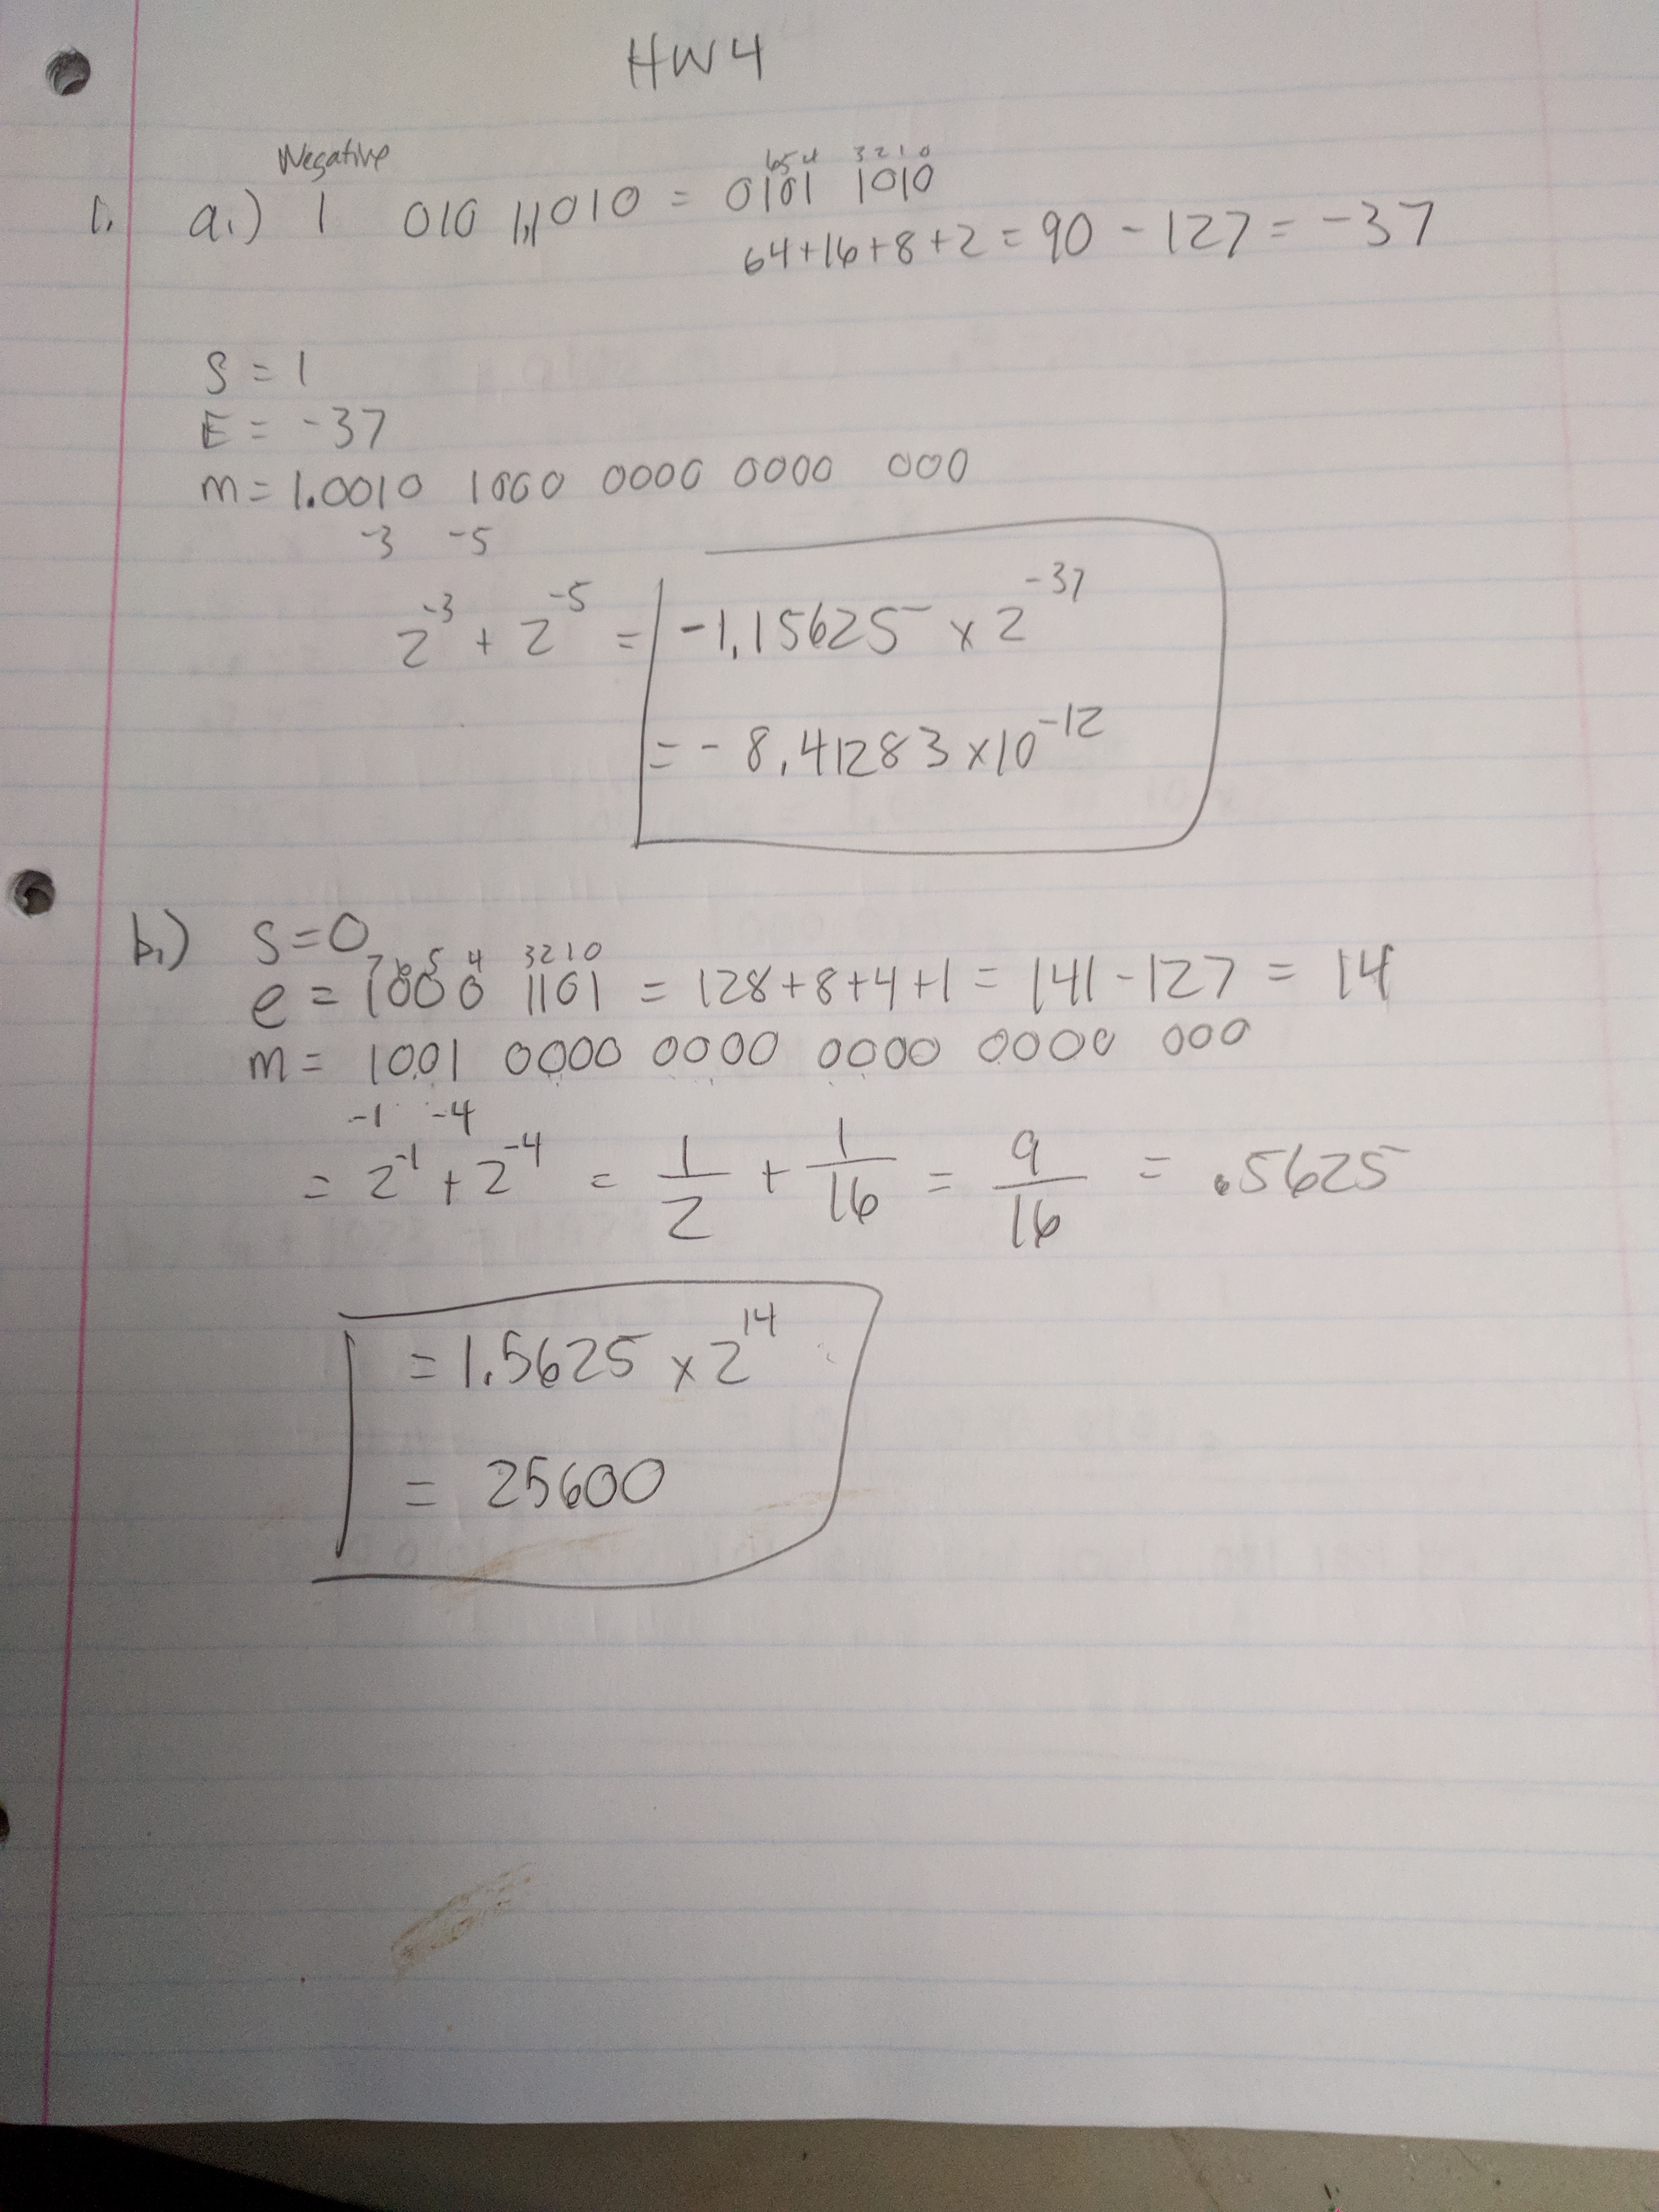 HW4
Negative
1. a.) 1 010 11,010 = 0101 1010
654 3210
64+16+8+2 = 90 - 127 = -37
S = 1
E = -37
m = 1.0010 1000 0000 0000 000
-3 -5
2^-3 + 2^-5 = -1.15625 x 2^-37
= - 8.41283 x 10^-12
b.) S = 0
7 6 5 4 3210
e = 1000 1101 = 128+8+4+1 = 141 - 127 = 14
m = 1001 0000 0000 0000 0000 000
-1 -4
= 2^-1 + 2^-4 = 1/2 + 1/16 = 9/16 = .5625
= 1.5625 x 2^14
= 25600